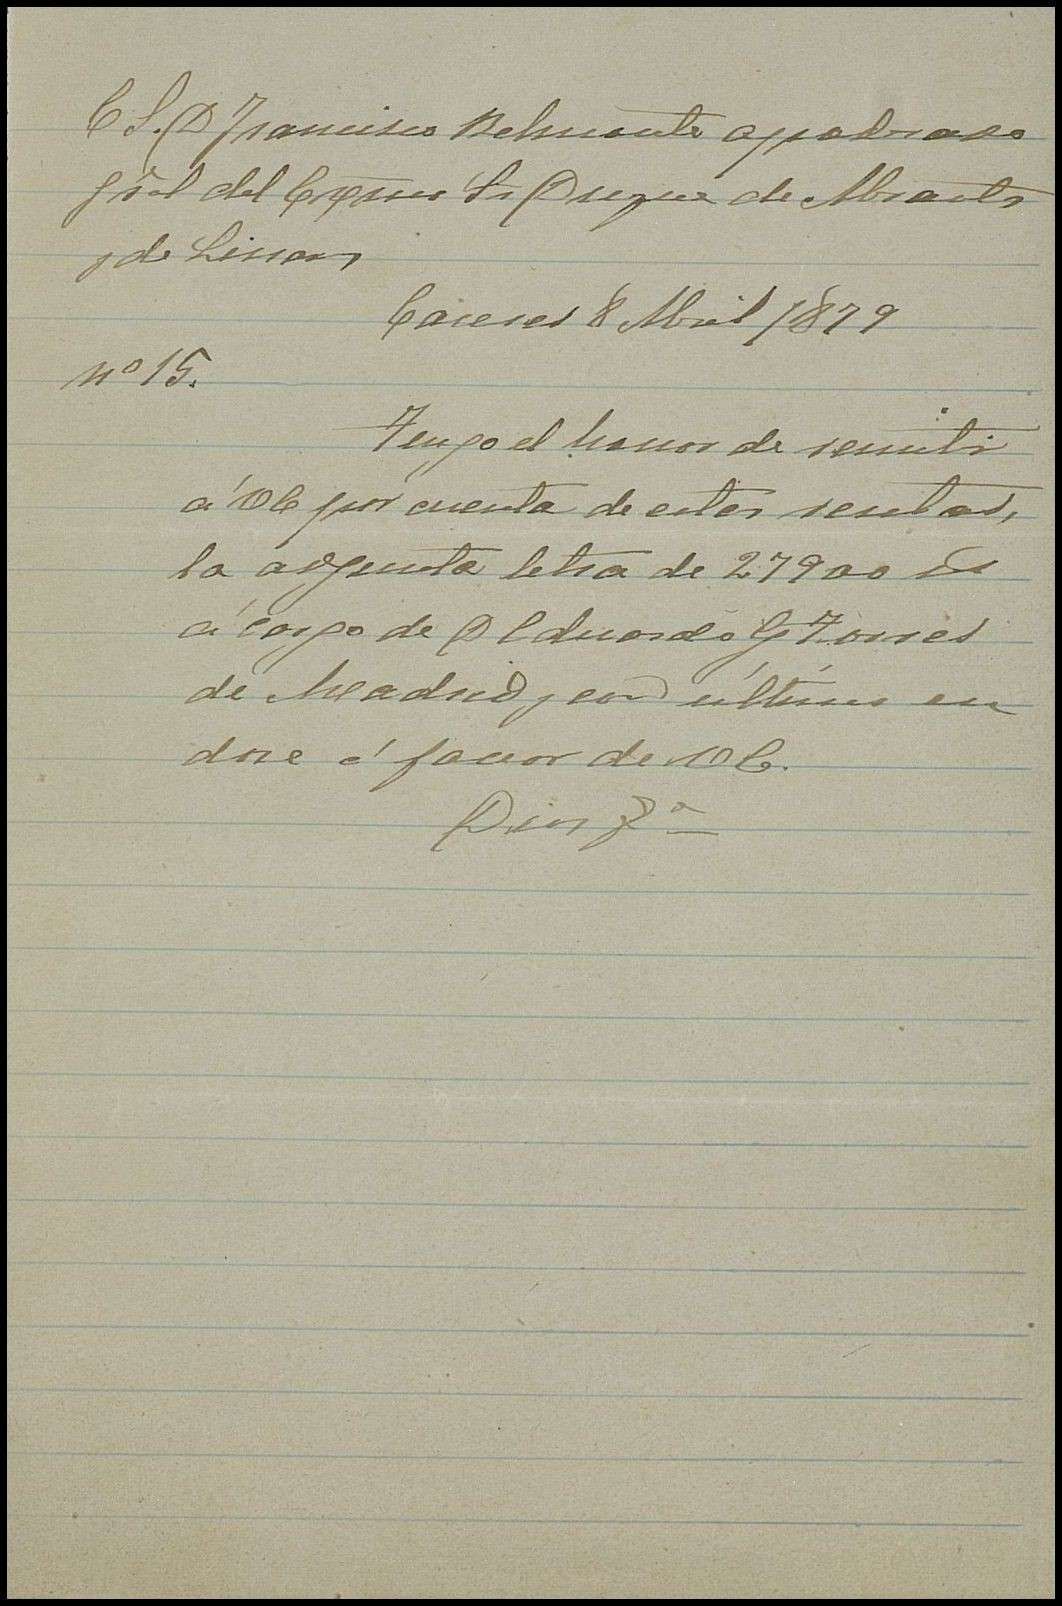 E S. D Francisco Belmonte apoderado
gral del Excmo Sr Duque de Abrantes
y de Linares
Caceres 8 Abril 1879
nº 15.
Tengo el honor de remitir
á VE por cuenta de estas rentas,
la adjunta letra de 27900 rs
á cargo de D Eduardo G Torres
de Madrid y con último en
dose á favor de VE.
Dios gª